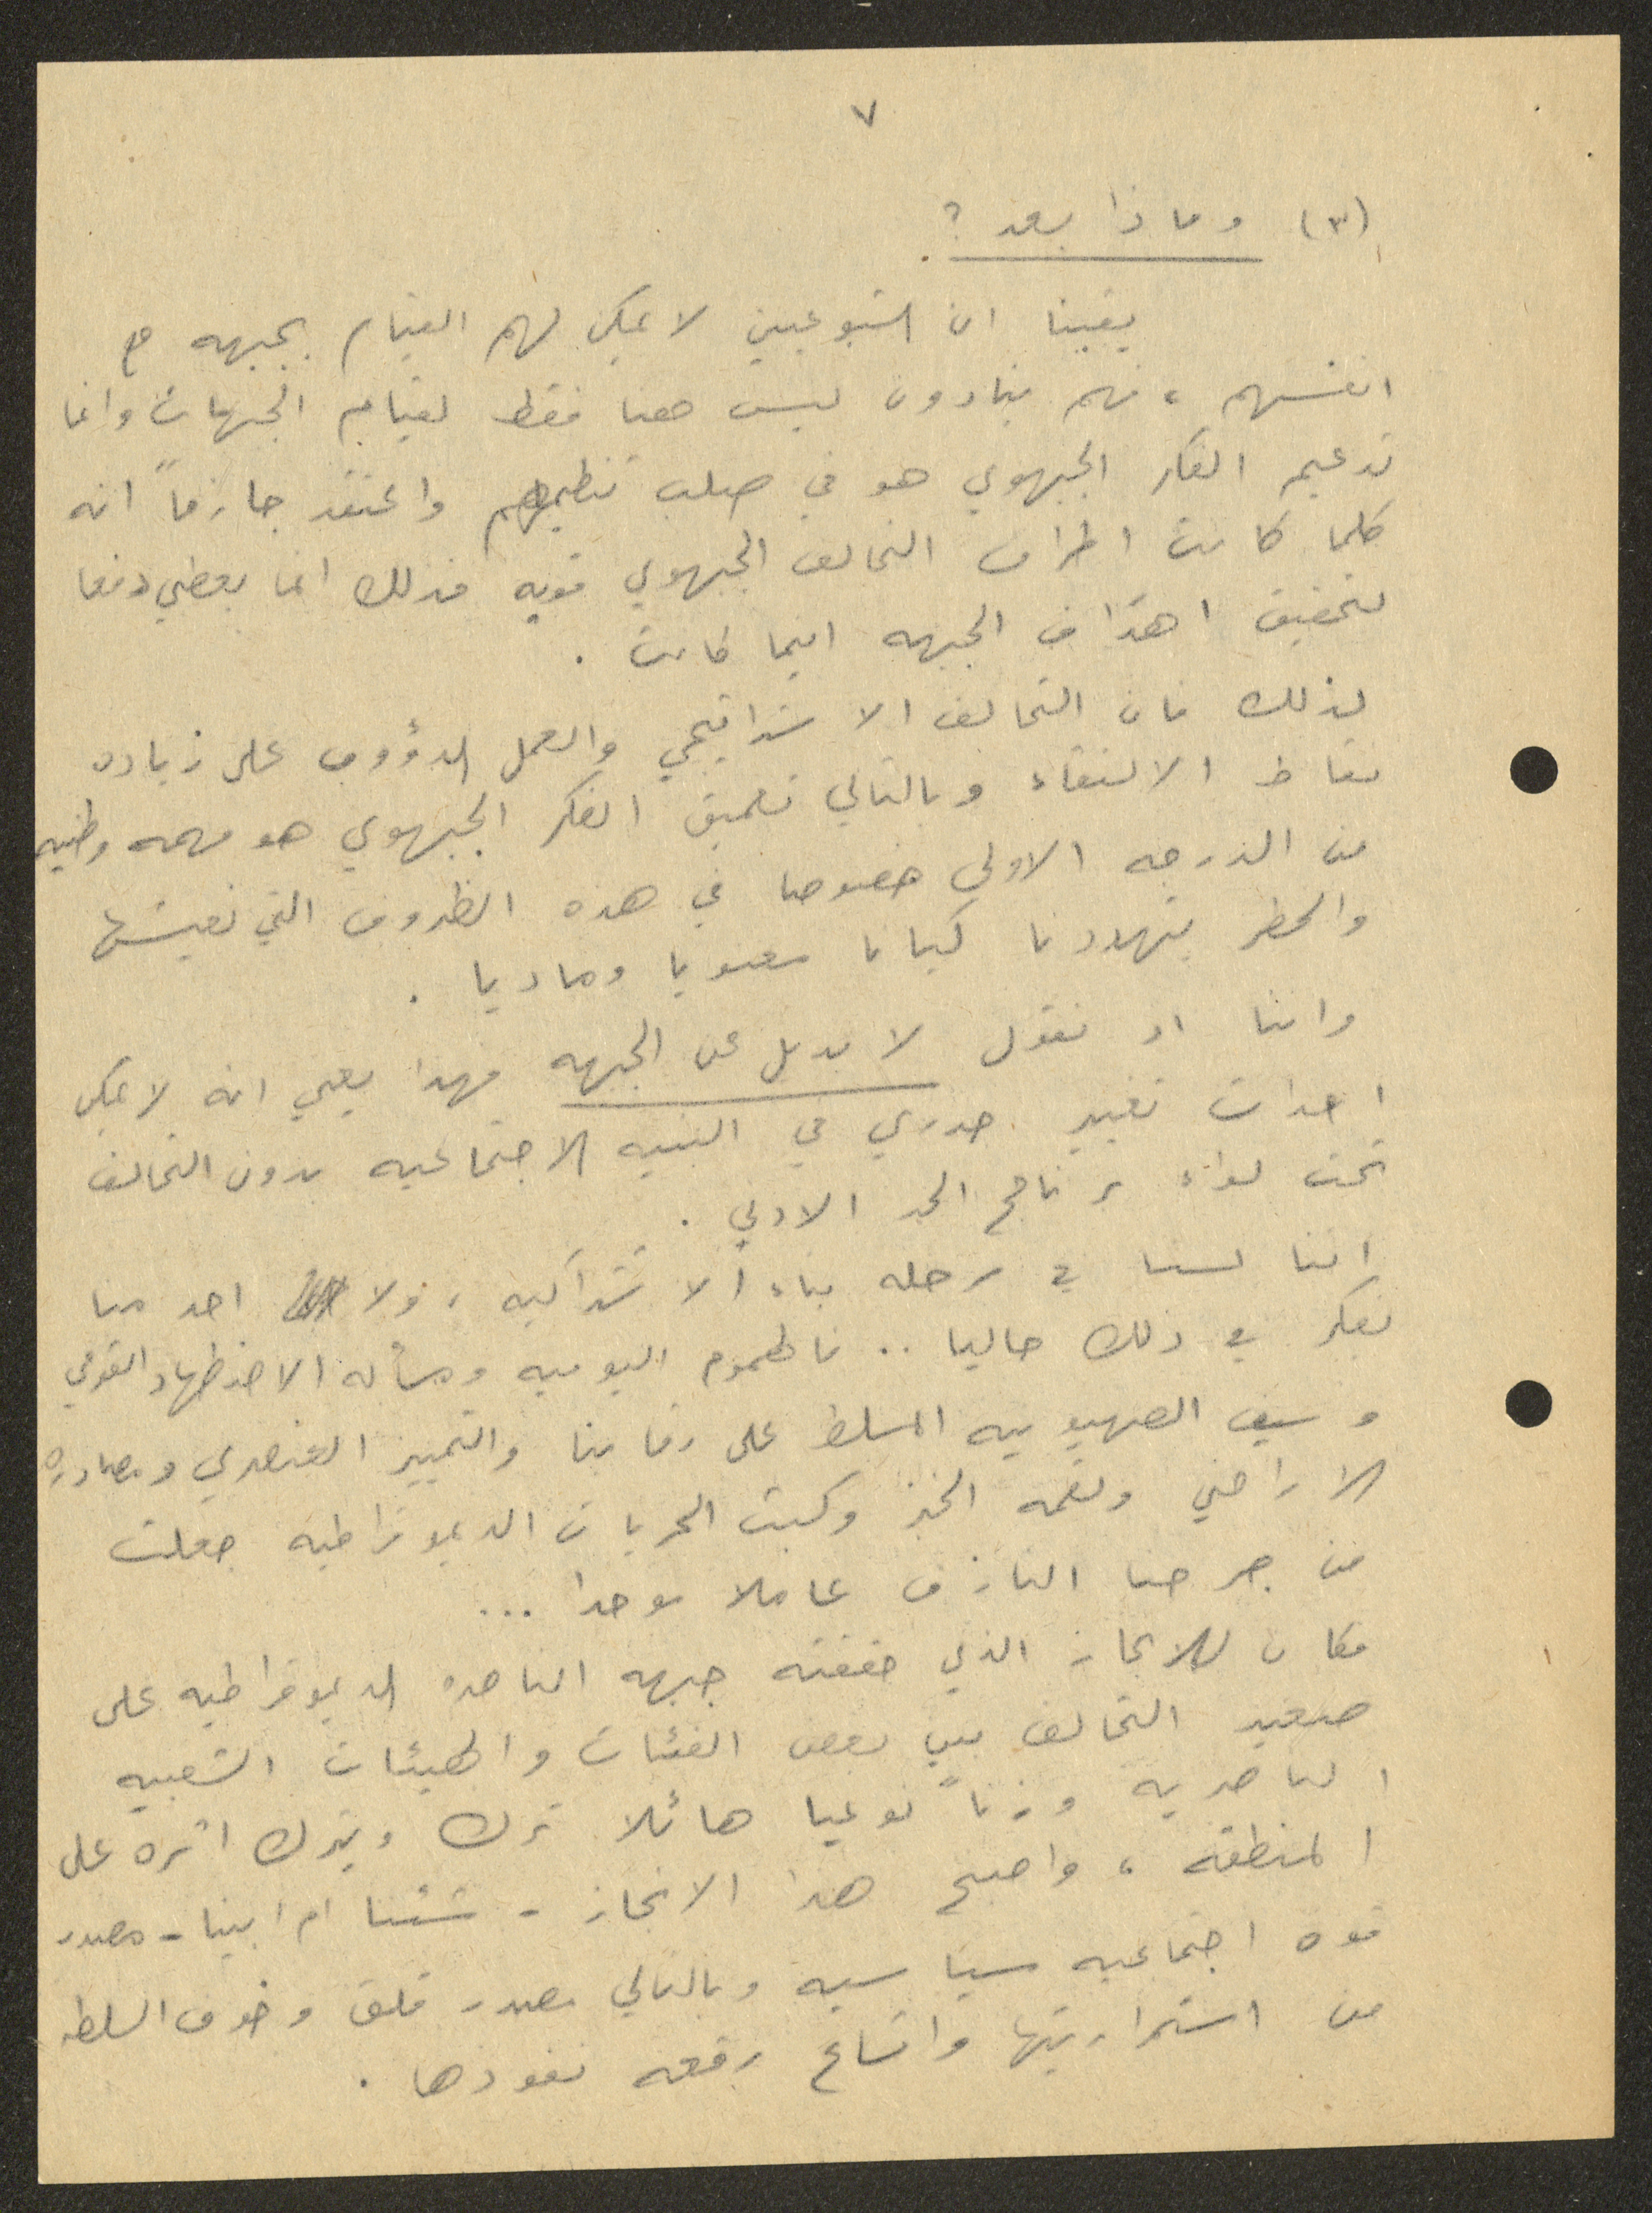 ٧
(٣) وماذا بعد ؟
يقينا ان الشيوعيين لا يمكن لهم القيام بجبهه مع
انفسهم ، فهم ينادون ليس فقط لقيام الجبهات وانما
تدعيم الفكر الجبهوي هو في صلب تنظيمهم واعتقد جازماً انه
كلما كانت اطراف التحالف الجبهوي قويه فذلك انما يعطي دفعا
لتحقيق اهداف الجبهه اينما كانت .
لذلك فان التحالف الاستراتيجي والعمل الدؤوب على زياده
نقاط الالتقاء وبالتالي تعميق الفكر الجبهوي هو مهمه وطنيه
من الدرجه الاولى خصوصا في هذه الظروف التي نعيشها
والخطر يتهددنا كيانا معنويا وماديا .
واننا اذ نقول لا بديل عن الجبهه فهذا يعني انه لا يمكن
احداث تغيير جذري في البنيه الاجتماعيه بدون التحالف
تحت لواء برنامج الحد الادنى .
اننا لسنا في مرحله بناء الاشتراكيه ، ولا احد منا
يفكر في ذلك حاليا .. فالهموم اليوميه ومسأله الاضطهاد القومي
وسيف الصهيونيه المسلط على رقابنا والتمييز العنصري ومصادره
الاراضي ولقمه الخبز وكبت الحريات الديموقراطيه جعلت
من جرحنا النازف عاملا موحدا ...
فكان للانجاز الذي حققته جبهه الناصره الديموقراطيه على
صعيد التحالف بين بعض الفئات والهيئات الشعبيه
النصراويه وزناً نوعيا هائلا ترك ويترك اثره على
المنطقه ، واصبح هذا الانجاز - شئنا ام ابينا - مصدر
قوه اجتماعيه سياسيه وبالتالي مصدر قلق وخوف السلطه
من استمراريتها واتساع رقعه نفوذها .